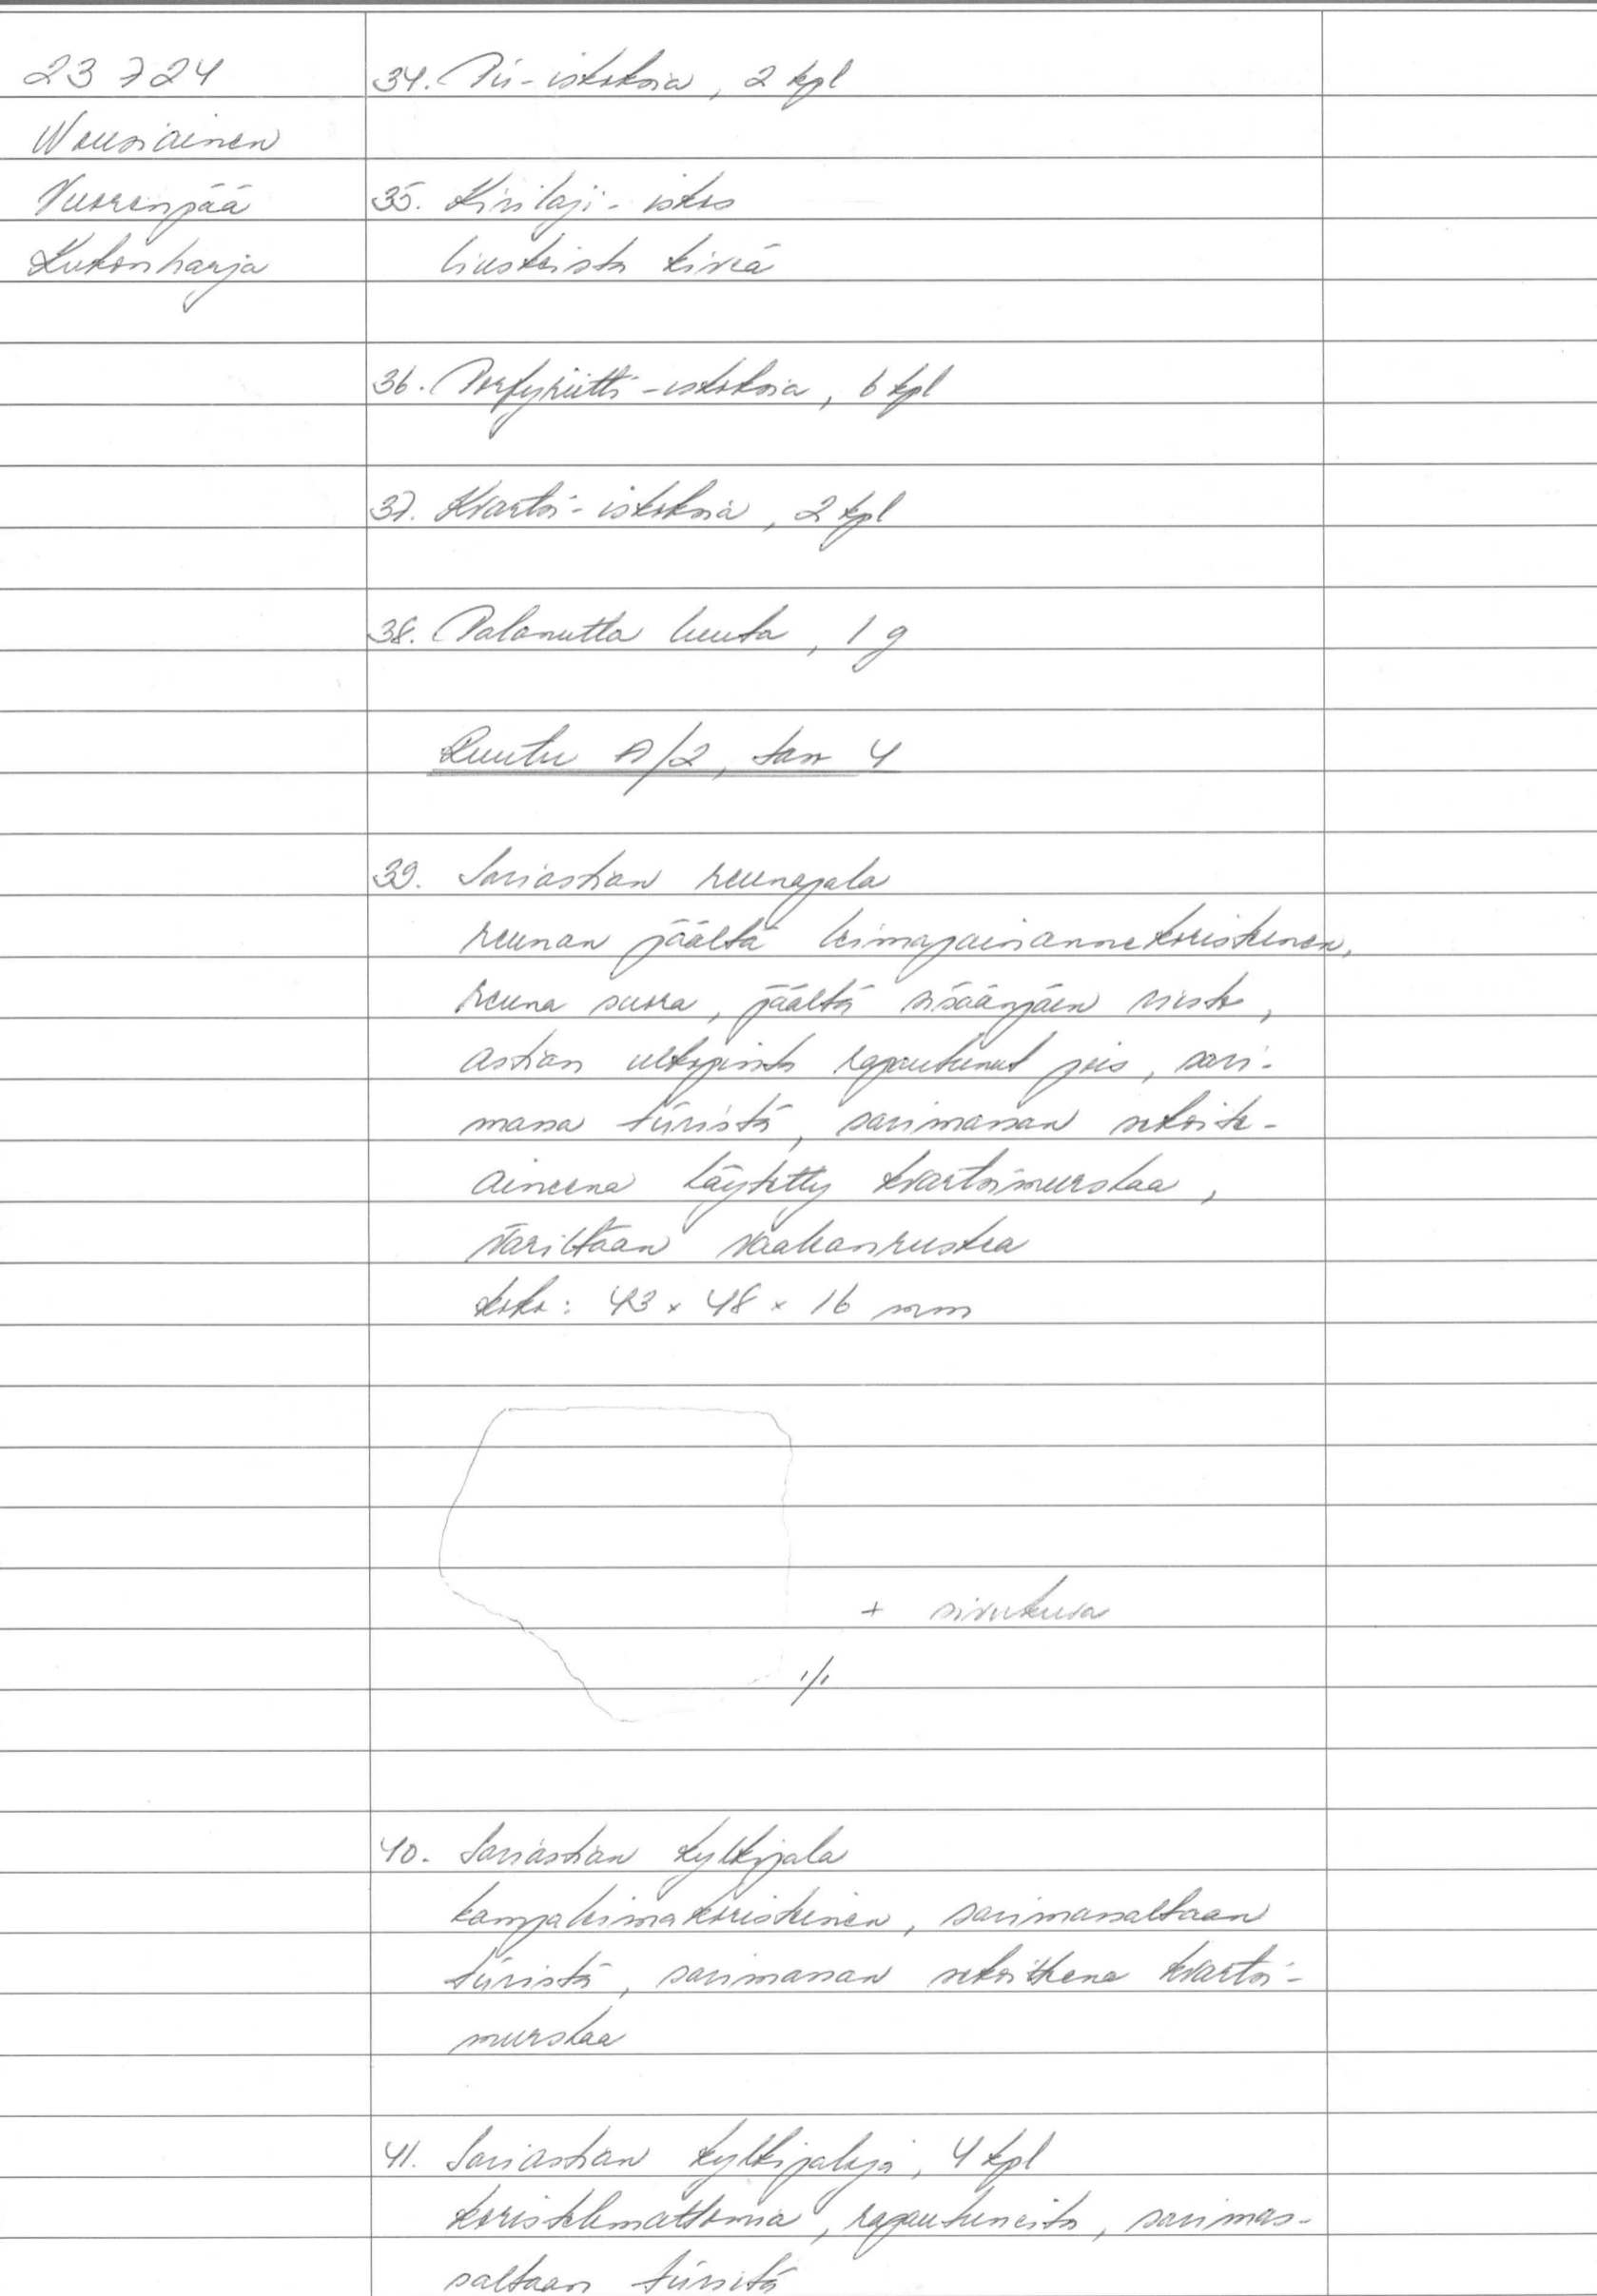 23724
Nousiainen
Vuorenpää
Kukonharja
34. Pii-iskoksia, 2 kpl
35. Kivilaji-iskos
liuskeista kiveä
36. Porfyriitti-iskoksia, 6 kpl
37. Kvartsi-iskoksia, 2 kpl
38. Palanutta luuta, 1 g
Ruutu A/2, tas 4
39. Saviastian reunapala
reunan päältä leimapainannekoristeinen,
reuna suora, päältä sisäänpäin viisto,
astian ulkopinta rapautunut pois, savi-
massa tiivistä, savimassan sekoite-
aineena käytetty kvartsimurskaa,
väriltään vaaleanruskea
koko: 43 x 48 x 16 mm
+ sivukuva
1/1
40. Saviastian kylkipala
kampaleimakoristeinen, savimassaltaan
tiivistä, savimassan sekoitteena kvartsi-
murskaa
41. Saviastian kylkipaloja, 4 kpl
koristelemattomia, rapautuneita, savimas-
saltaan tiivistä